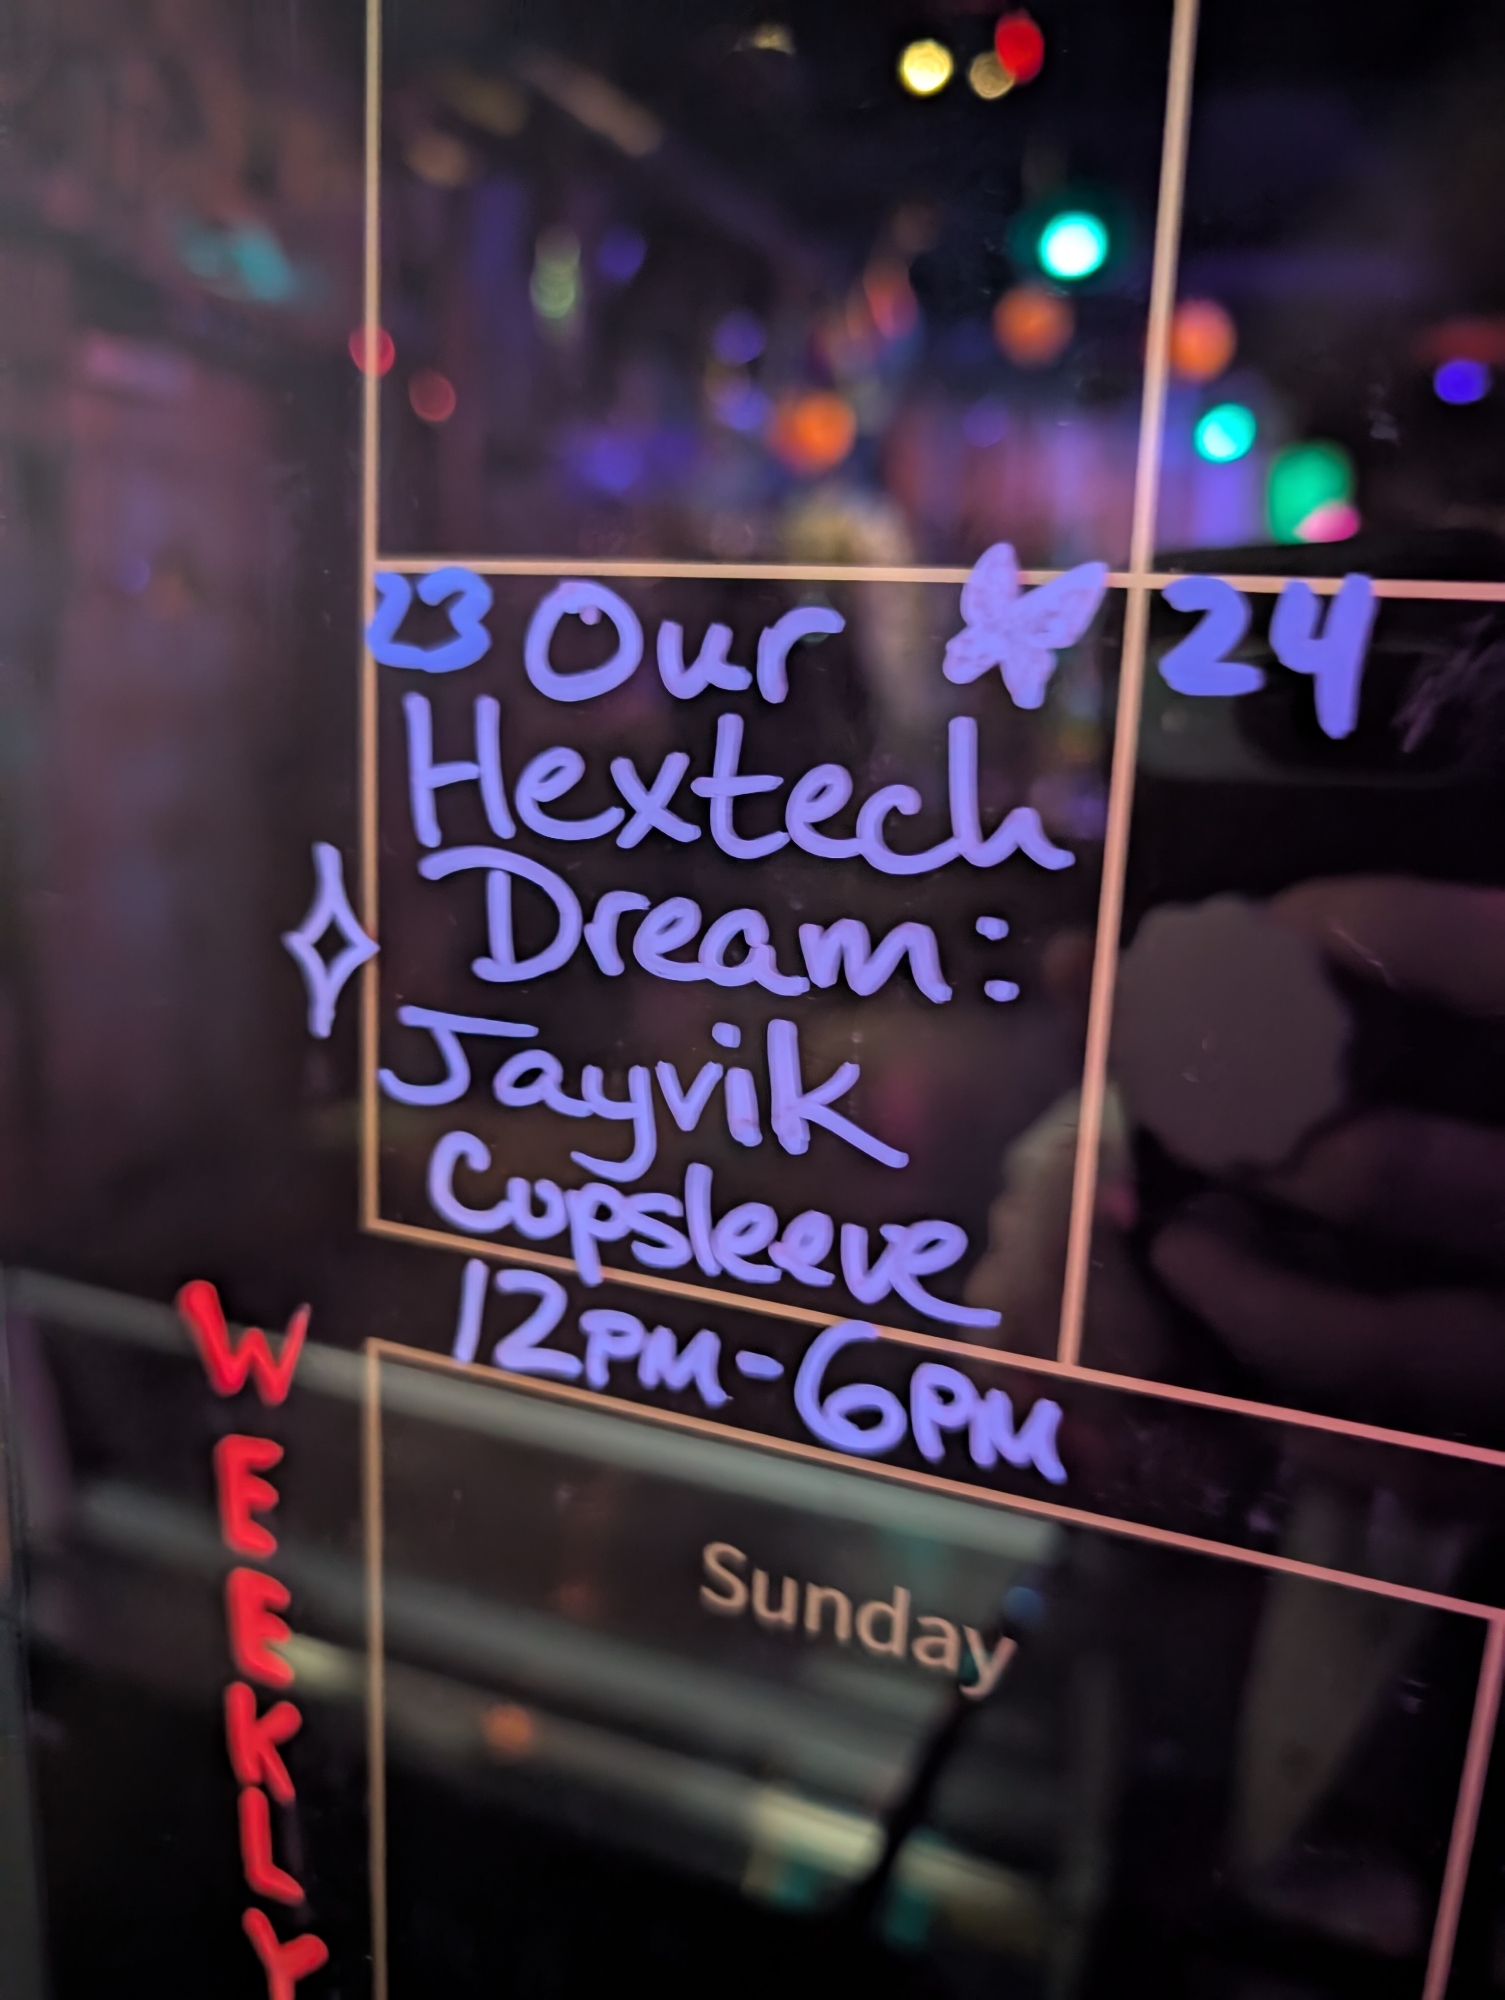 23 Our 24
Hextech
Dream:
Jayvik
Cupsleeve
12PM-6PM
WEEKLY
Sunday